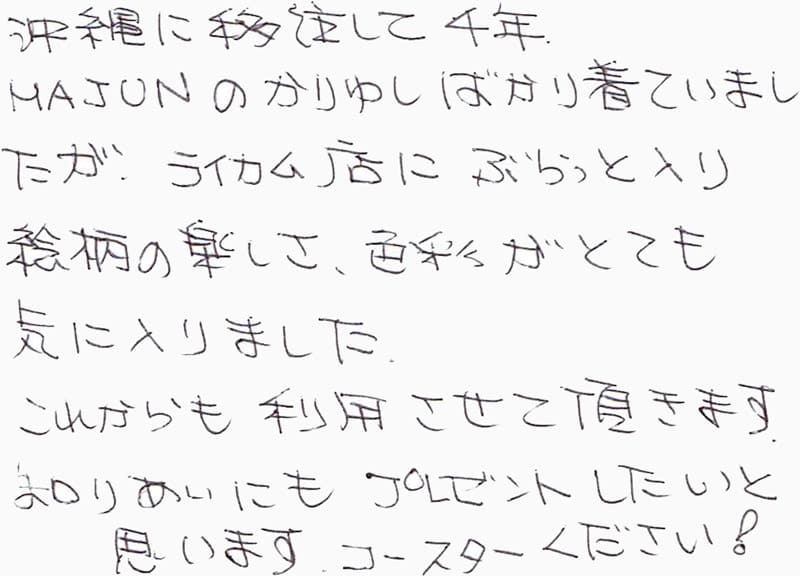 沖縄に移住して4年.
MAJUNのかりゆしばかり着ていまし
たが、ライカム店にぶらっと入り
絵柄の楽しさ、色彩がとても
気に入りました.
これからも利用させて頂きます.
知りあいにもプレゼントしたいと
思います.コースターください!